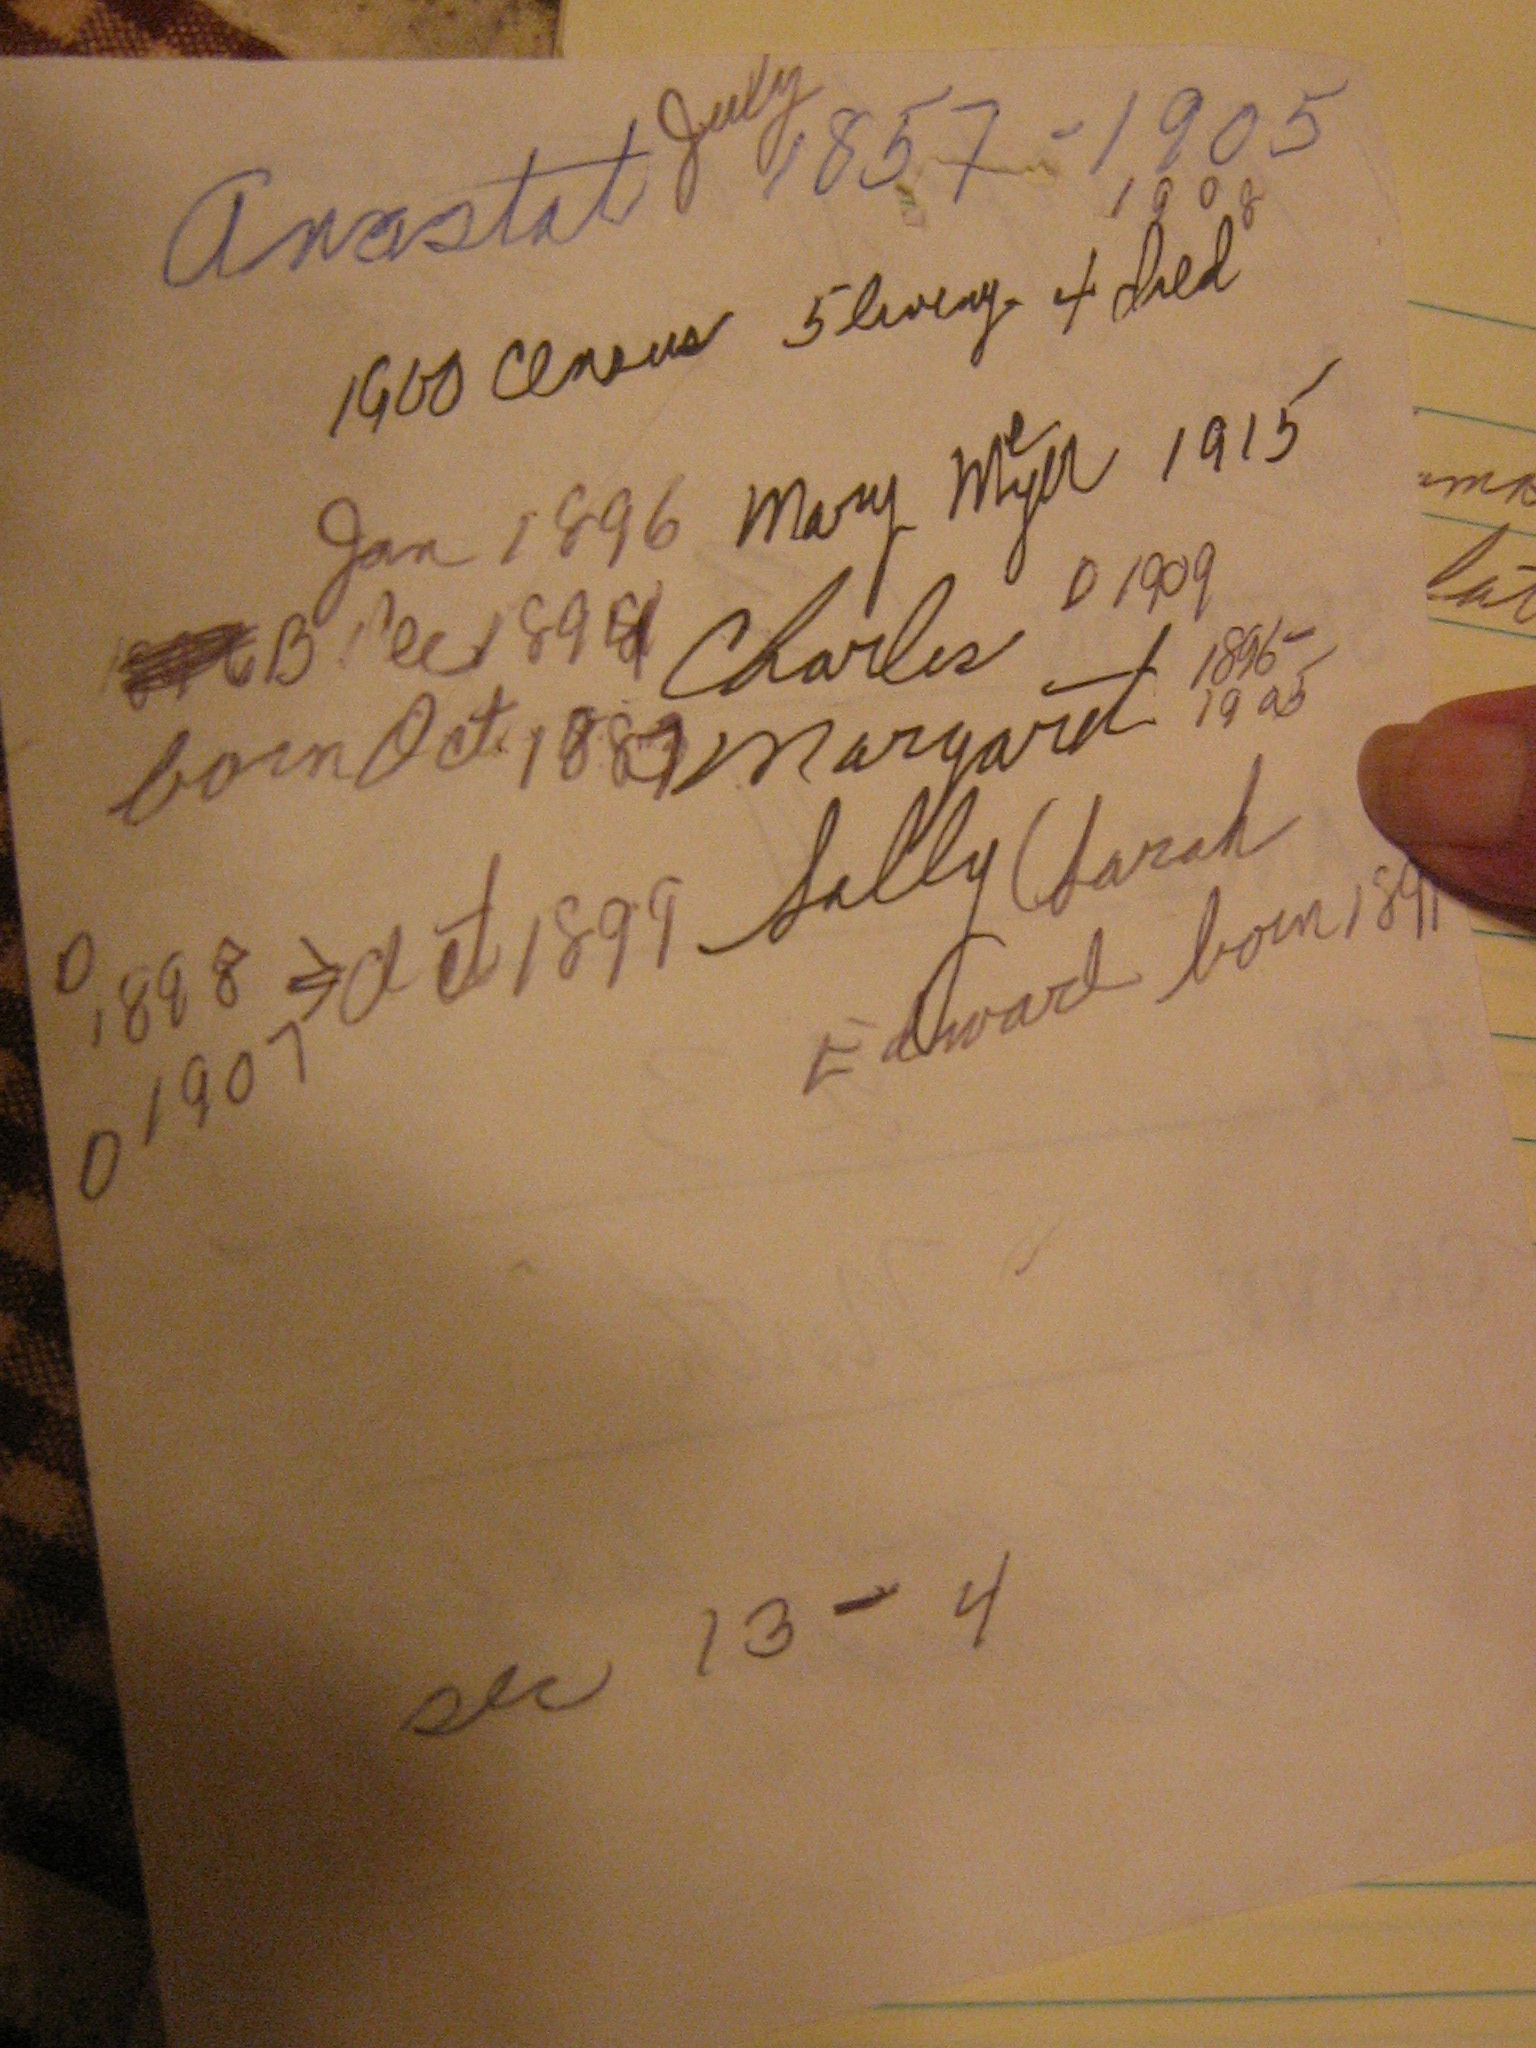 Anastat July 1857 - 1905
1908
1900 Census 5 living 4 died
Jan 1896 Mary Meyer 1915
B Dec 1891 Charles D 1909
born Oct. 1887 Margaret 1896-
1905
D 1898 → Oct 1899 Sally (Sarah
D 1907
Edward born 1891
sec 13 - 4